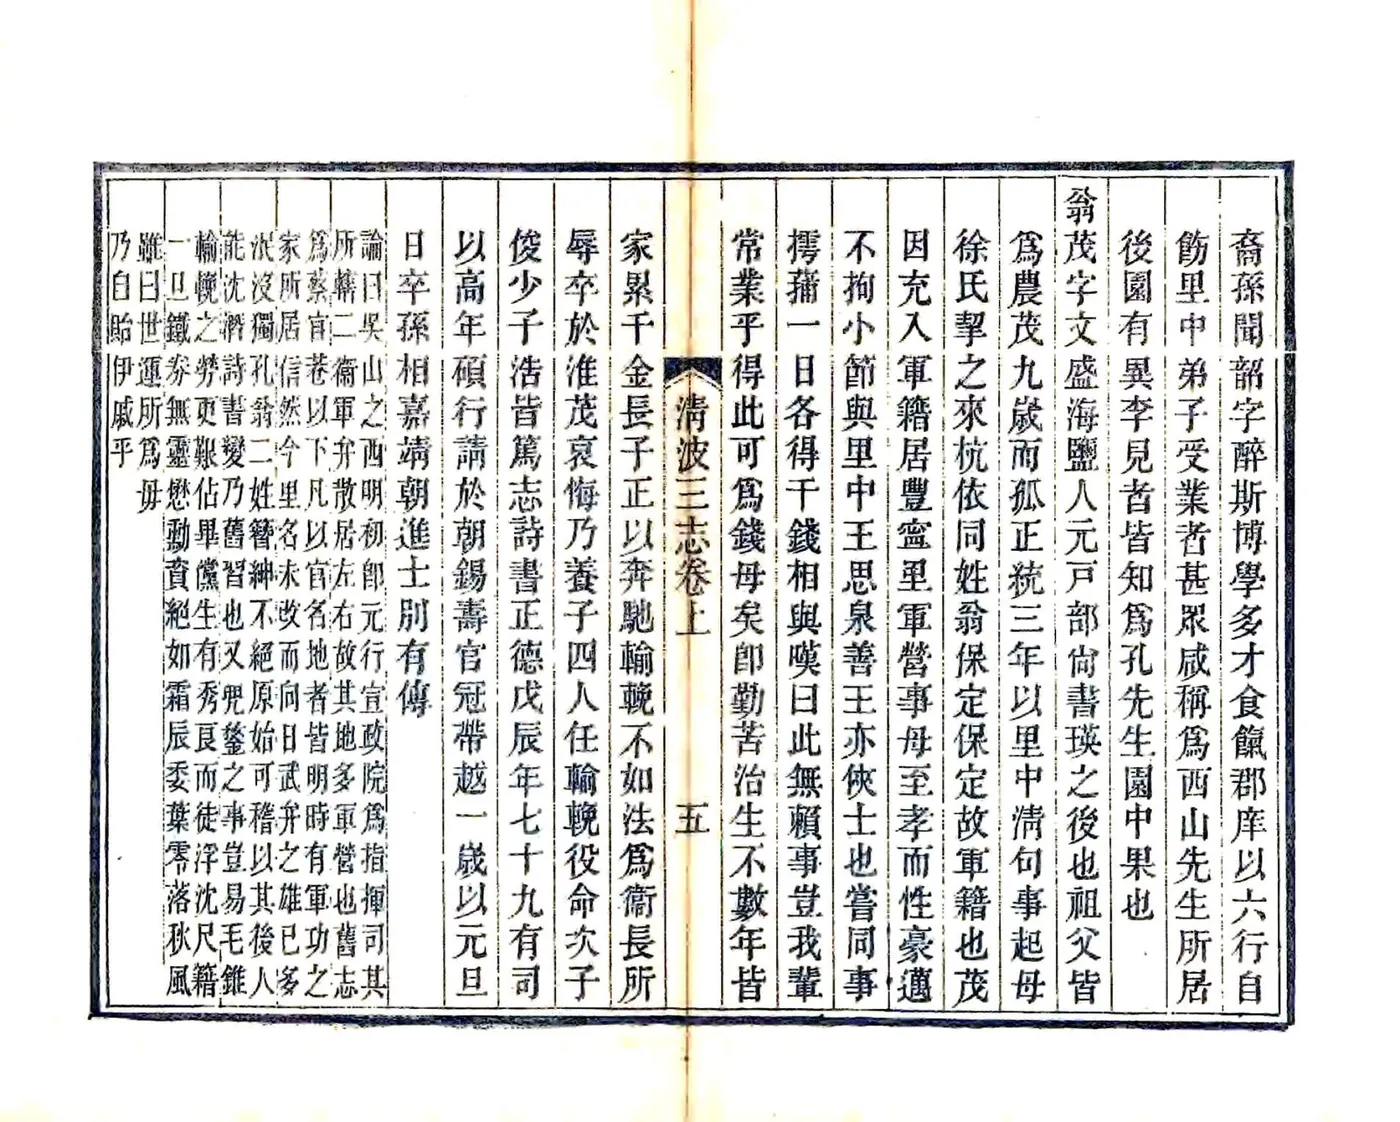 裔孫聞韶字醉斯博學多才食餼郡庠以六行自
飭里中弟子受業者甚眾咸稱爲西山先生所居
後園有異李見者皆知爲孔先生園中果也
翁茂字文盛海鹽人元戸部尙書瑛之後也祖父皆
爲農茂九歲而孤正統三年以里中淸句事起母
徐氏挈之來杭依同姓翁保定保定故軍籍也茂
因充入軍籍居豐寧里軍營事母至孝而性豪邁
不拘小節與里中王思泉善王亦俠士也嘗同事
摴蒱一日各得千錢相與嘆曰此無賴事豈我輩
常業乎得此可爲錢母矣卽勤苦治生不數年皆
淸波三志卷上
五
家累千金長子正以奔馳輸輓不如法爲衞長所
辱卒於淮茂哀悔乃養子四人任輸輓役命次子
俊少子浩皆篤志詩書正德戊辰年七十九有司
以高年碩行請於朝錫壽官冠帶越一歲以元旦
日卒孫相嘉靖朝進士別有傳
論曰吳山之西明初卽元行宣政院爲指揮司其
所轄二衞軍弁散居左右故其地多軍營也舊志
爲蔡官巷以下凡以官名地者皆明時有軍功之
家所居信然今里名未改而向日武弁之雄已多
泯沒獨孔翁二姓簪紳不絕原始可稽以其後人
能沈濳詩書變乃舊習也又兜鍪之事豈易毛錐
輸輓之勞更艱佔畢儻生有秀良而徒浮沈尺籍
一旦鐵券無靈懋勳賁絕如霜辰委葉零落秋風
雖曰世運所爲毋
乃自貽伊戚乎